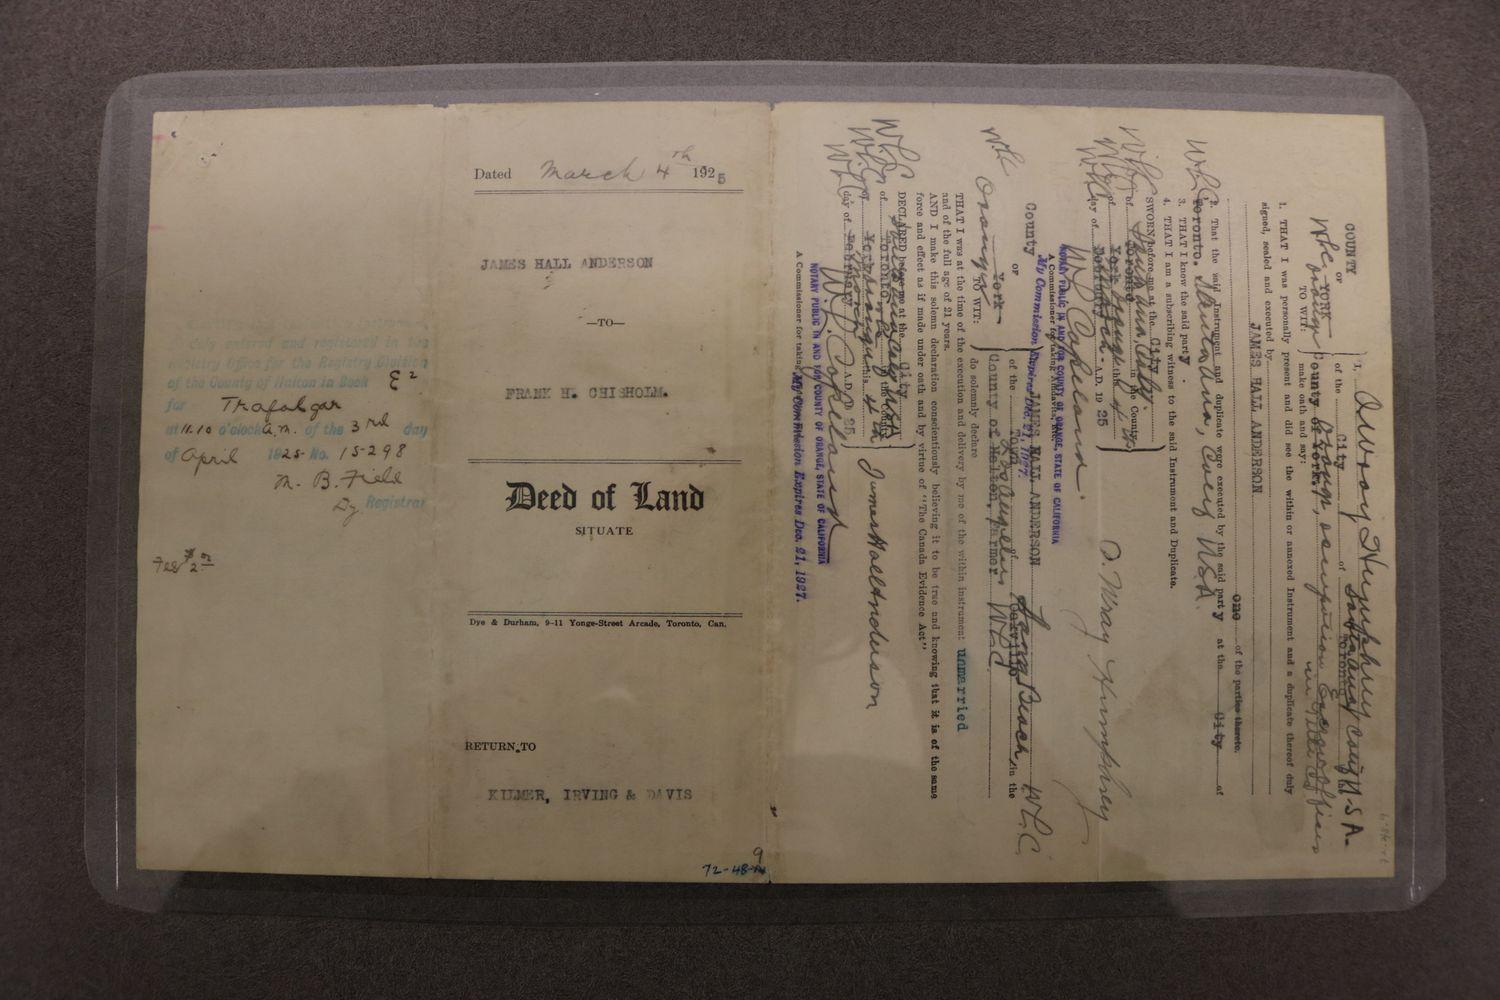 duly entered and registered in the
Registry Office for the Registry Division
of the County of Halton in Book E²
for Trafalgar
at 11.10 o'clock a.m. of the 3rd day
of April 1925 No. 15298
M. B. Field
Dy. Registrar
Dated March 4th 1925
JAMES HALL ANDERSON
—TO—
FRANK H. CHISHOLM.
Deed of Land
SITUATE
Dye & Durham, 9-11 Yonge-Street Arcade, Toronto, Can.
RETURN TO
KILMER, IRVING & DAVIS
72-48-9
COUNTY
OF
YORK
Orange
TO WIT:
I, Humphrey
of the City of
County of York,
make oath and say:
1. THAT I was personally present and did see the within or annexed Instrument and a duplicate thereof duly
signed, sealed and executed by
JAMES HALL ANDERSON
one of the parties thereto.
2. That the said Instrument and duplicate were executed by the said party at the City of
Toronto. Santa Ana, U.S.A.
3. THAT I know the said party.
4. THAT I am a subscribing witness to the said Instrument and Duplicate.
SWORN before me at the City
of Toronto in the County
of York
day of A.D. 1925
W. L. Copeland.
O. Wray Humphrey
A Commissioner for taking Affidavits, etc.
NOTARY PUBLIC IN AND FOR COUNTY OF ORANGE, STATE OF CALIFORNIA
My Commission Expires Dec. 21, 1927.
WLC
County
OF
York
Orange
TO WIT:
JAMES HALL ANDERSON
of the Town of Oakville Long Beach, in the
County of Halton, Farmer Los Angeles WLC
do solemnly declare
THAT I was at the time of the execution and delivery by me of the within instrument unmarried
and of the full age of 21 years.
AND I make this solemn declaration conscientiously believing it to be true and knowing that it is of the same
force and effect as if made under oath and by virtue of "The Canada Evidence Act"
DECLARED before me at the City
of Toronto in the County
of York this
day of February A.D. 1925
James Hall Anderson
W. L. Copeland
A Commissioner for taking
NOTARY PUBLIC IN AND FOR COUNTY OF ORANGE, STATE OF CALIFORNIA
My Commission Expires Dec. 21, 1927.